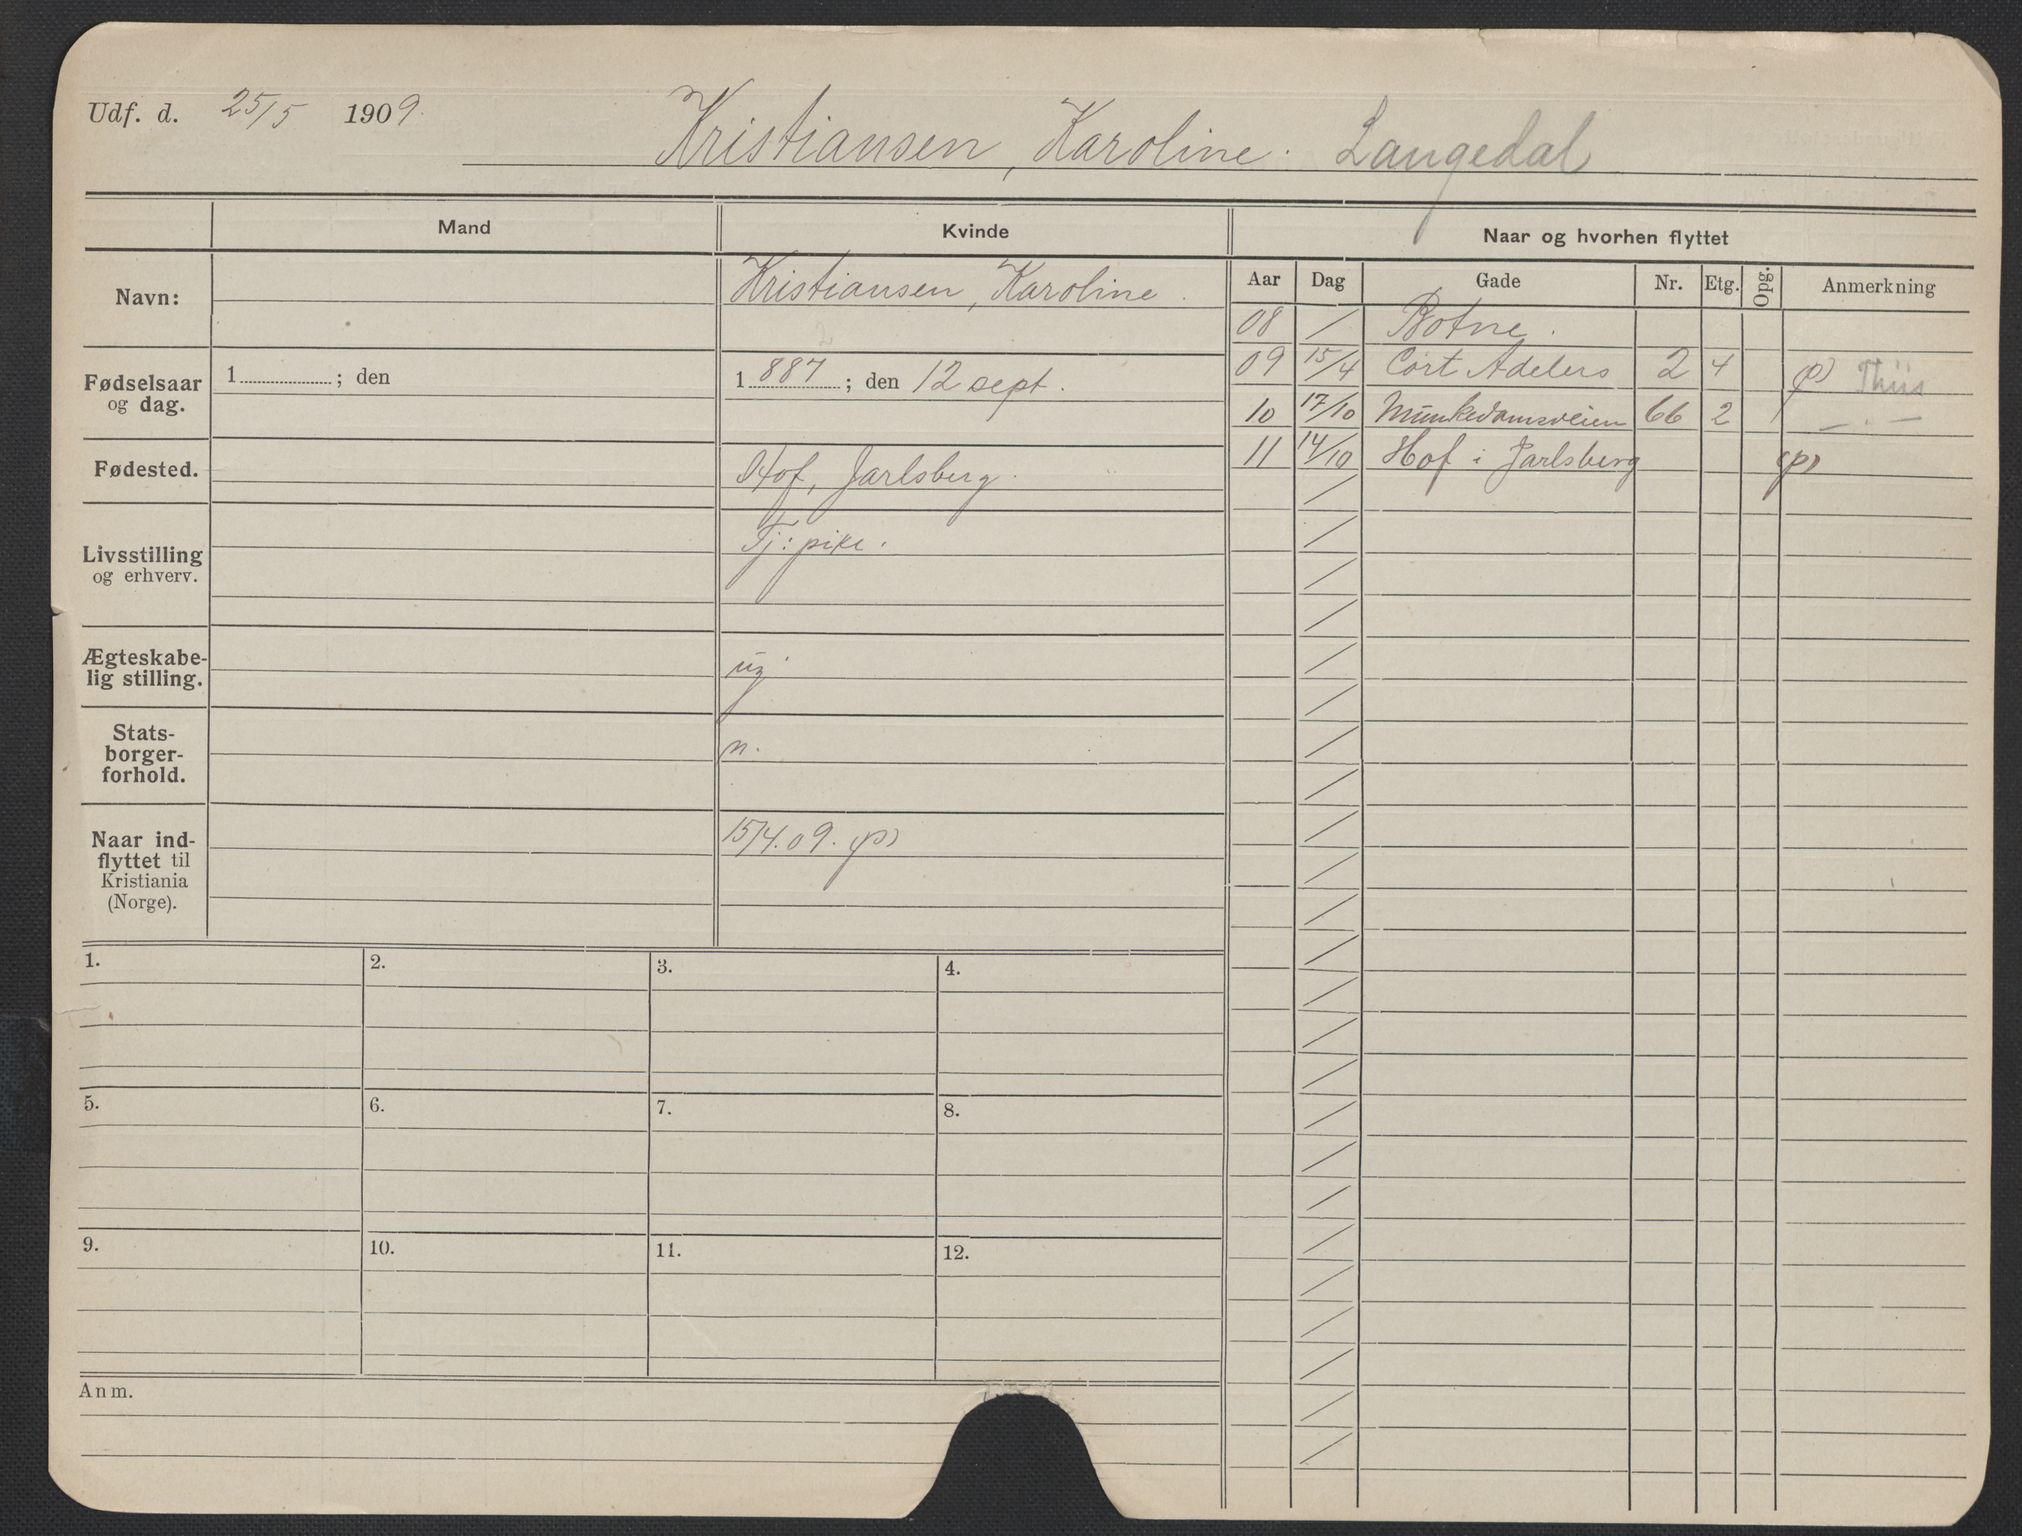 Udf. d. 25/5 1909. Kristiansen, Karoline. Langedal
Mand Kvinde Naar og hvorhen flyttet
Aar Dag Gade Nr. Etg. Opg. Anmerkning
Navn: Kristiansen, Karoline.
08 / Botne.
Fødselsaar og dag. 1 ; den 1 887 ; den 12 sept.
09 15/4 Cort Adelers 2 4 (p) Thiis
10 17/10 Munkedamsveien 66 2 — " —
11 14/10 Hof i Jarlsberg (p)
Fødested. Hof, Jarlsberg.
Livsstilling
og erhverv.
Tj: pike.
Ægteskabe-
lig stilling.
ug.
Stats-
borger-
forhold.
n.
Naar ind-
flyttet til
Kristiania
(Norge).
15/4.09. (p)
1. 2. 3. 4.
5. 6. 7. 8.
9. 10. 11. 12.
Anm.